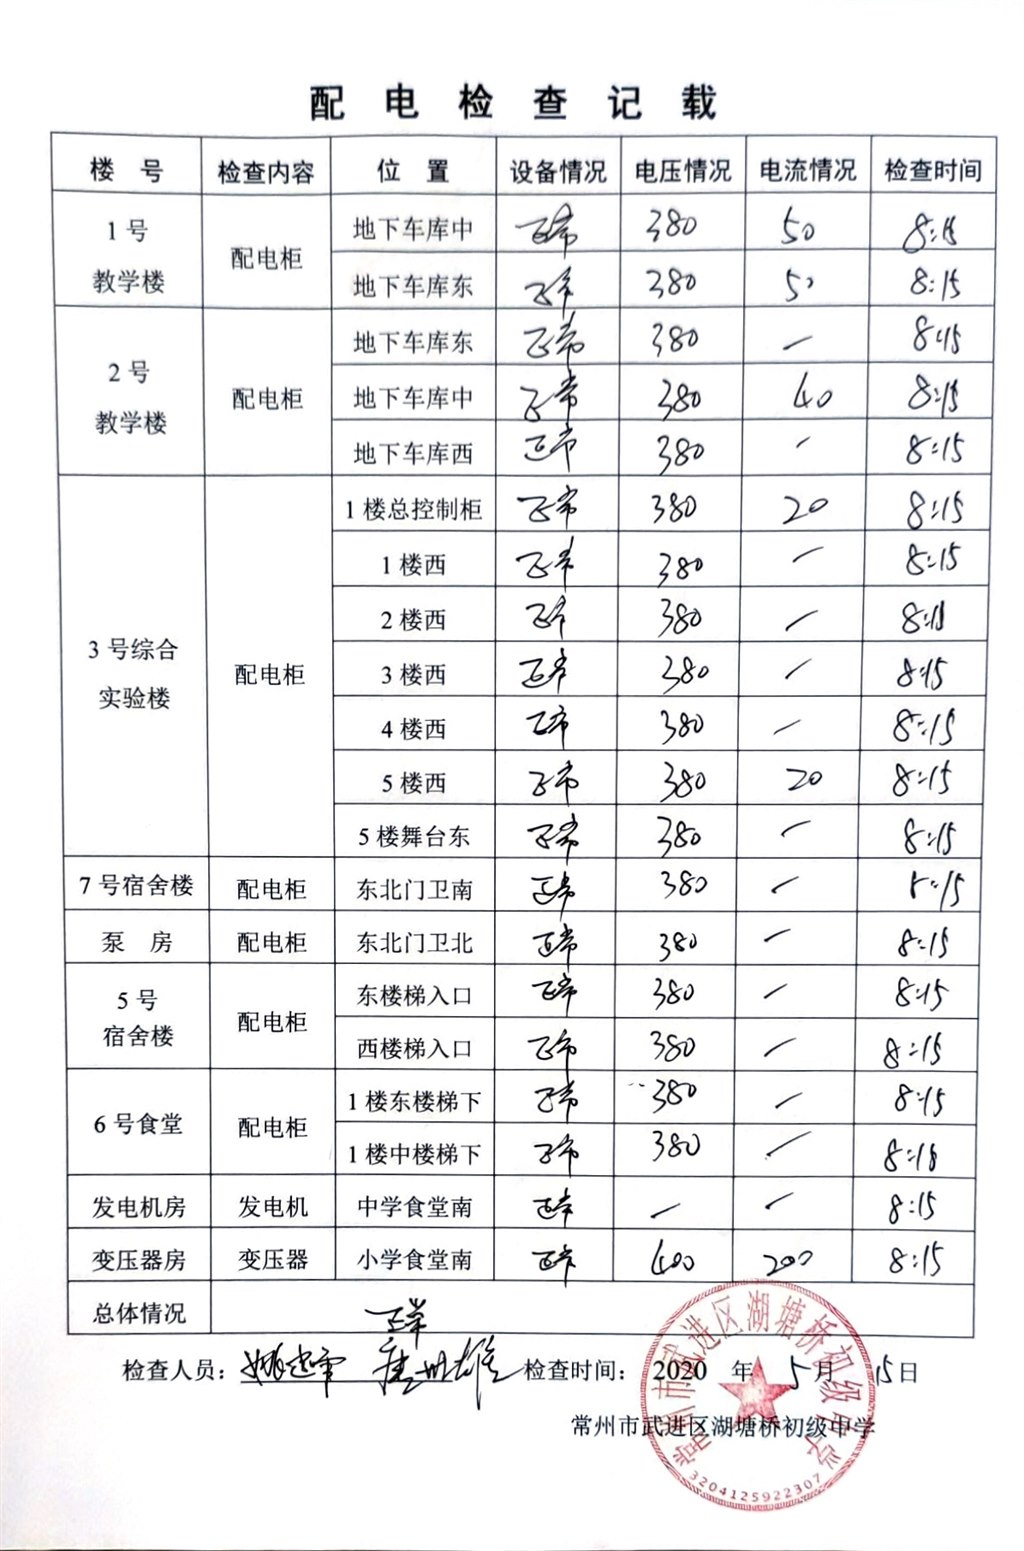 配电检查记载
楼号 检查内容 位置 设备情况 电压情况 电流情况 检查时间
1号教学楼 配电柜 地下车库中 正常 380 50 8:15
地下车库东 正常 380 50 8:15
2号教学楼 配电柜 地下车库东 正常 380 — 8:15
地下车库中 正常 380 40 8:15
地下车库西 正常 380 — 8:15
3号综合实验楼 配电柜 1楼总控制柜 正常 380 20 8:15
1楼西 正常 380 — 8:15
2楼西 正常 380 — 8:15
3楼西 正常 380 — 8:15
4楼西 正常 380 — 8:15
5楼西 正常 380 20 8:15
5楼舞台东 正常 380 — 8:15
7号宿舍楼 配电柜 东北门卫南 正常 380 — 8:15
泵房 配电柜 东北门卫北 正常 380 — 8:15
5号宿舍楼 配电柜 东楼梯入口 正常 380 — 8:15
西楼梯入口 正常 380 — 8:15
6号食堂 配电柜 1楼东楼梯下 正常 380 — 8:15
1楼中楼梯下 正常 380 — 8:15
发电机房 发电机 中学食堂南 正常 — — 8:15
变压器房 变压器 小学食堂南 正常 400 200 8:15
总体情况 正常
检查人员: 检查时间: 2020年5月15日
常州市武进区湖塘桥初级中学
常州市武进区湖塘桥初级中学
3204125922307